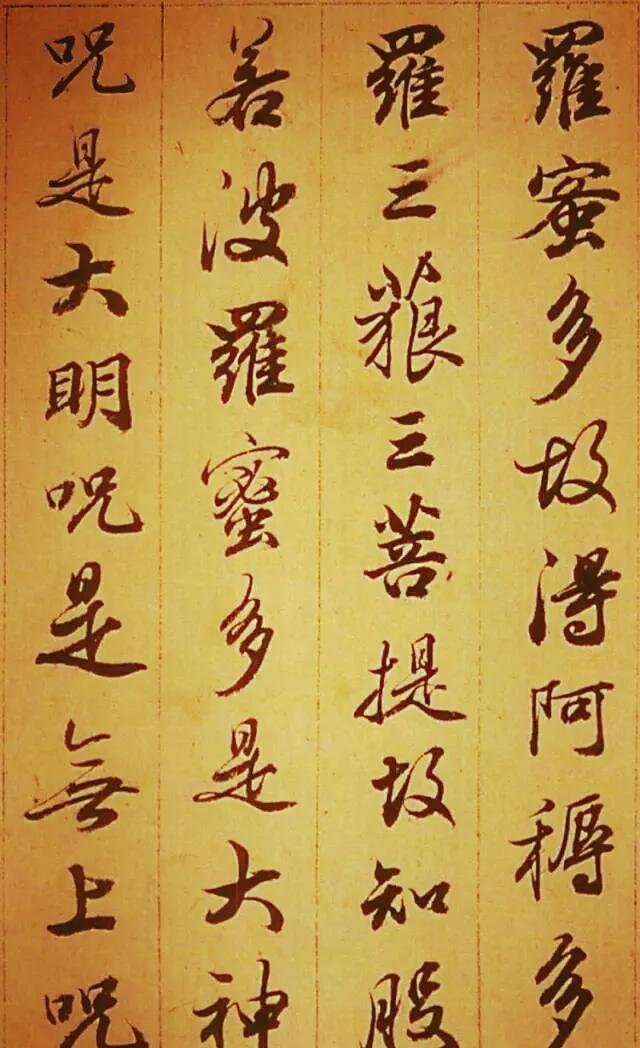 羅蜜多故得阿耨多
羅三藐三菩提故知般
若波羅蜜多是大神
咒是大明咒是無上咒